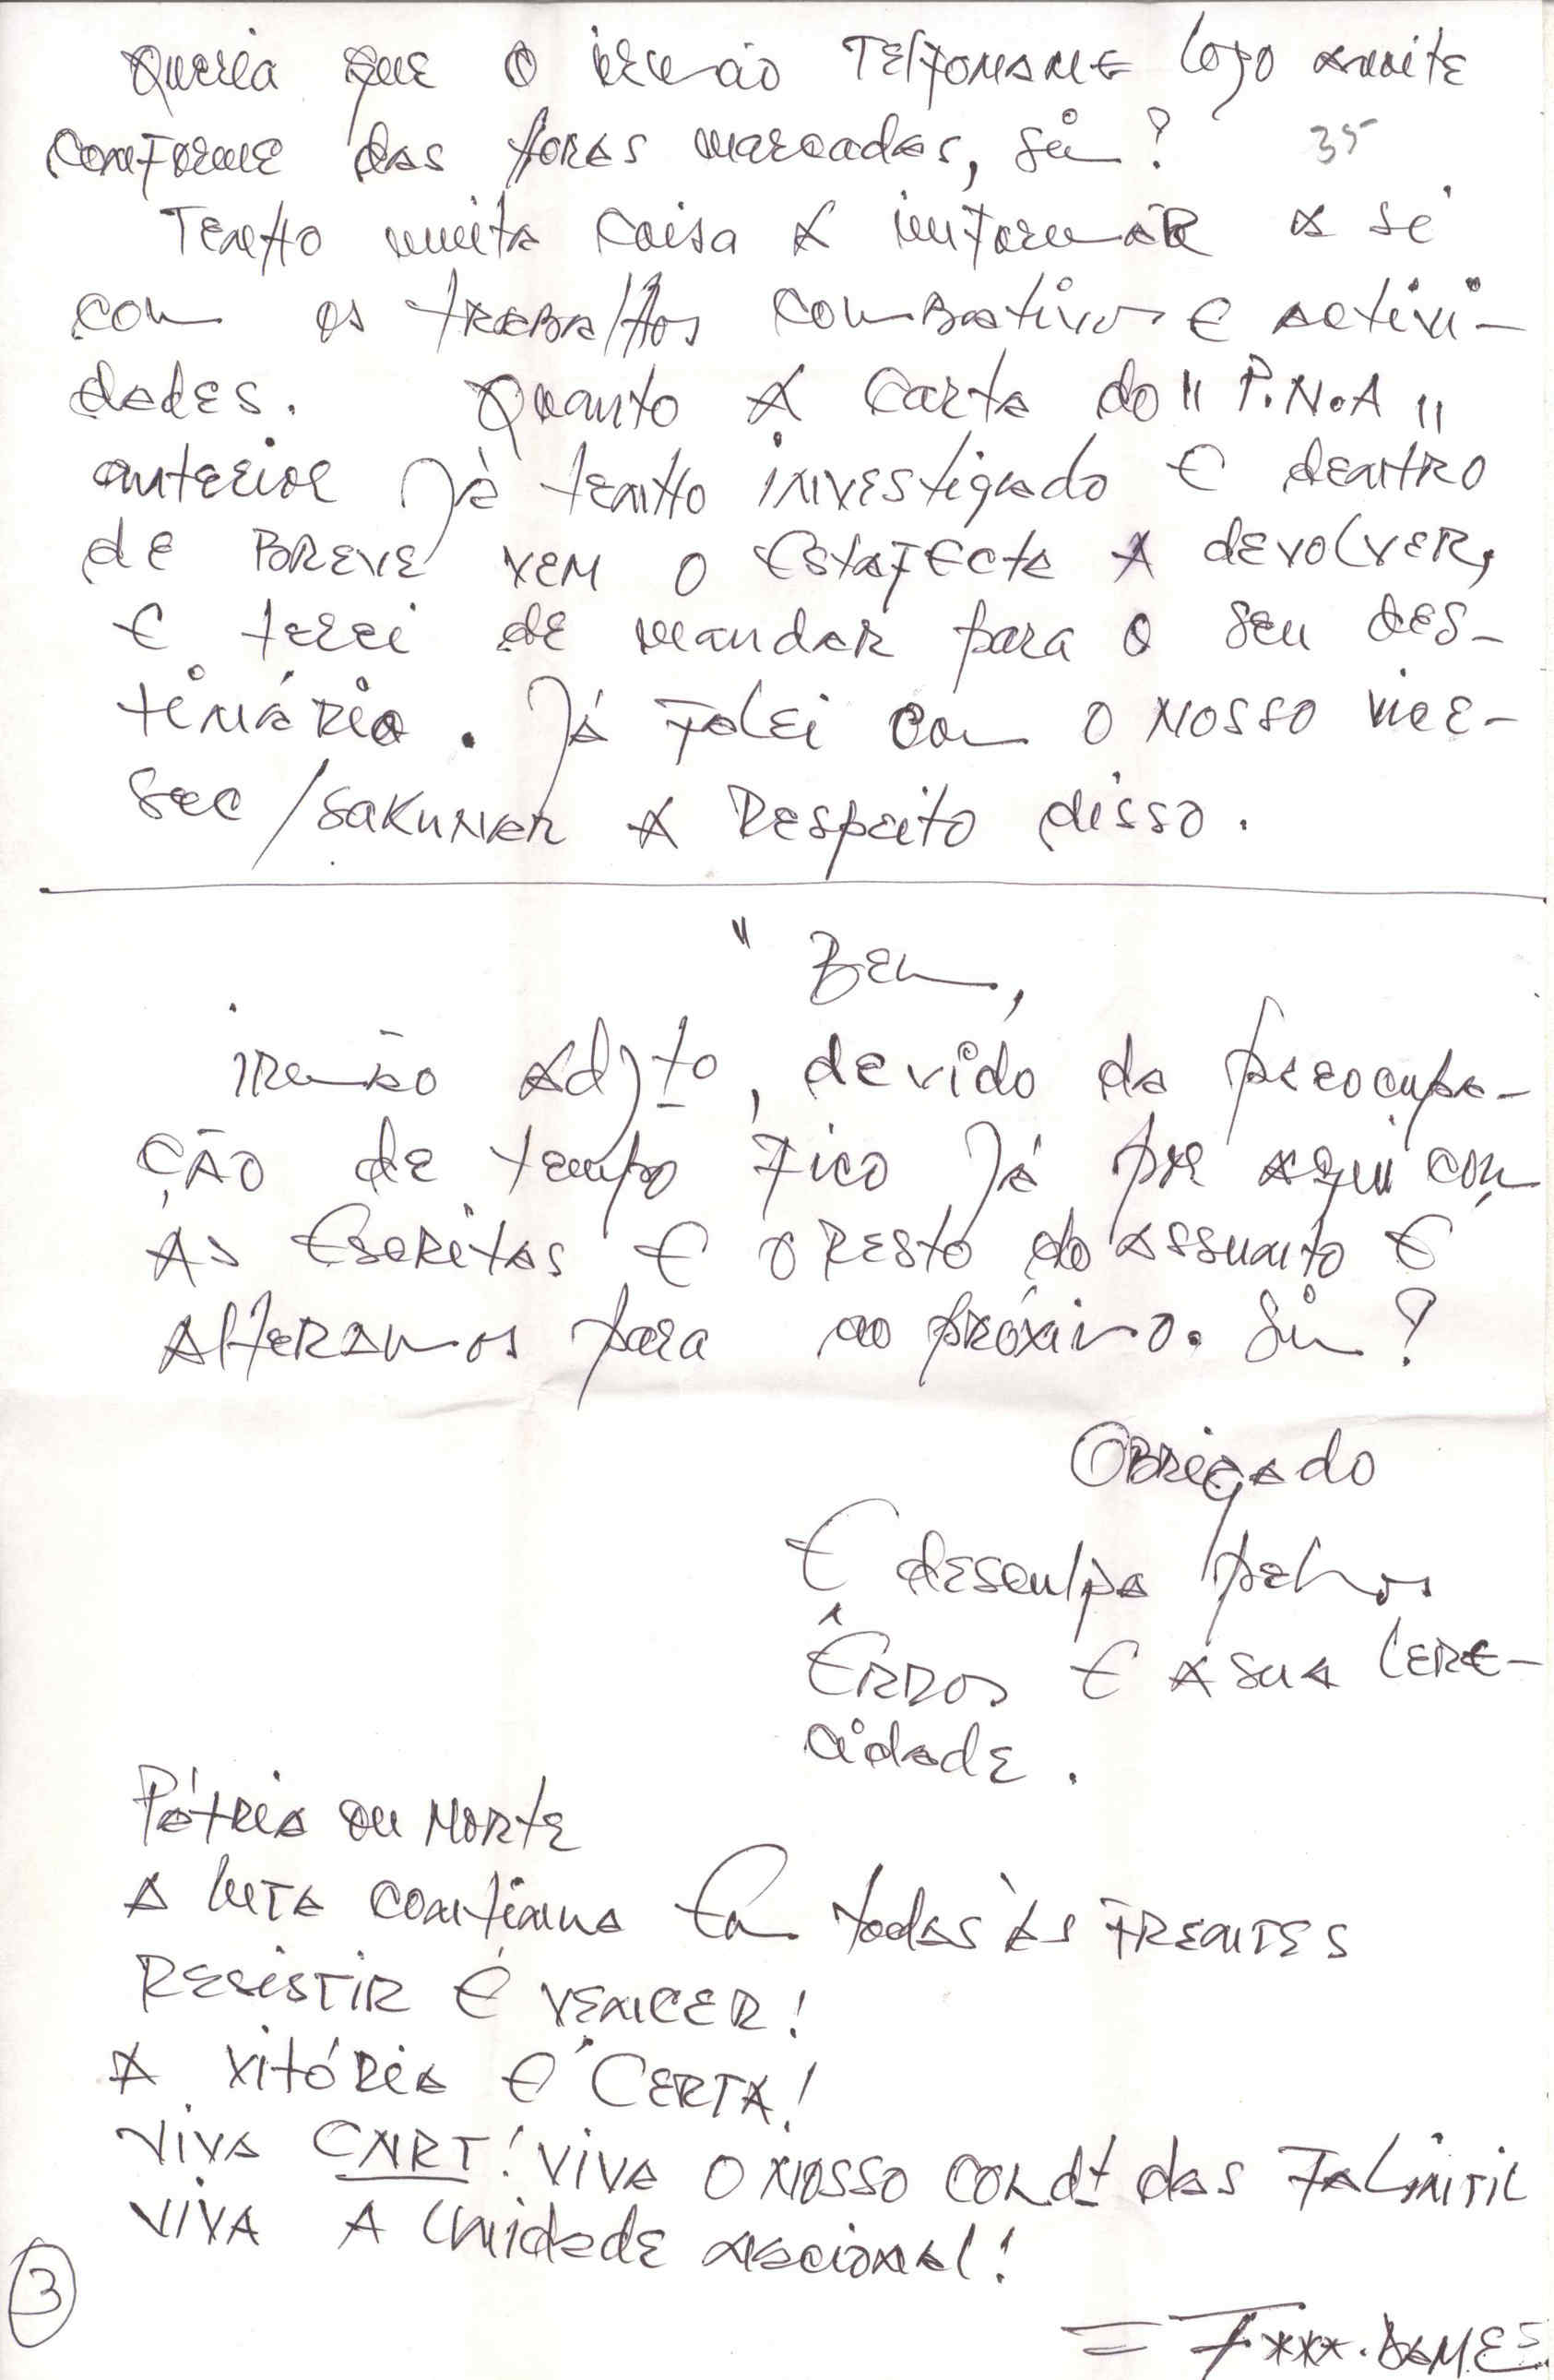 Queria que o irmão Telfonasme logo anoite
conforme das horas marcadas, sim?
35
Tenho muita coisa a informar a si
com os trabalhos combativos e activi-
dades. Quanto A carta do "P.N.A"
anterior Já tenho investigado e dentro
de BREVE VEM o Estafecta A devolver,
e terei de mandar para o seu des-
tinário. Já falei com o NOSSO vice-
Sec/SAKUNAR A Respeito disso.
" Bem,
irmão Adjto, devido da preocupa-
ção de tempo fico Já por aqui com
As Escritas e o Resto do assunto é
Alteramos para ao próximo. Sim?
Obrigado
E desculpa pelos
Êrros e A sua Cere-
cidade.
Pátria ou Morte
A luta continua Em todas às FRENTES
RESISTIR É VENCER!
A vitória é CERTA!
VIVA CNRT! VIVA O NOSSO Comdt das Falintil
VIVA A Unidade nacional!
3
= F***. DAMES